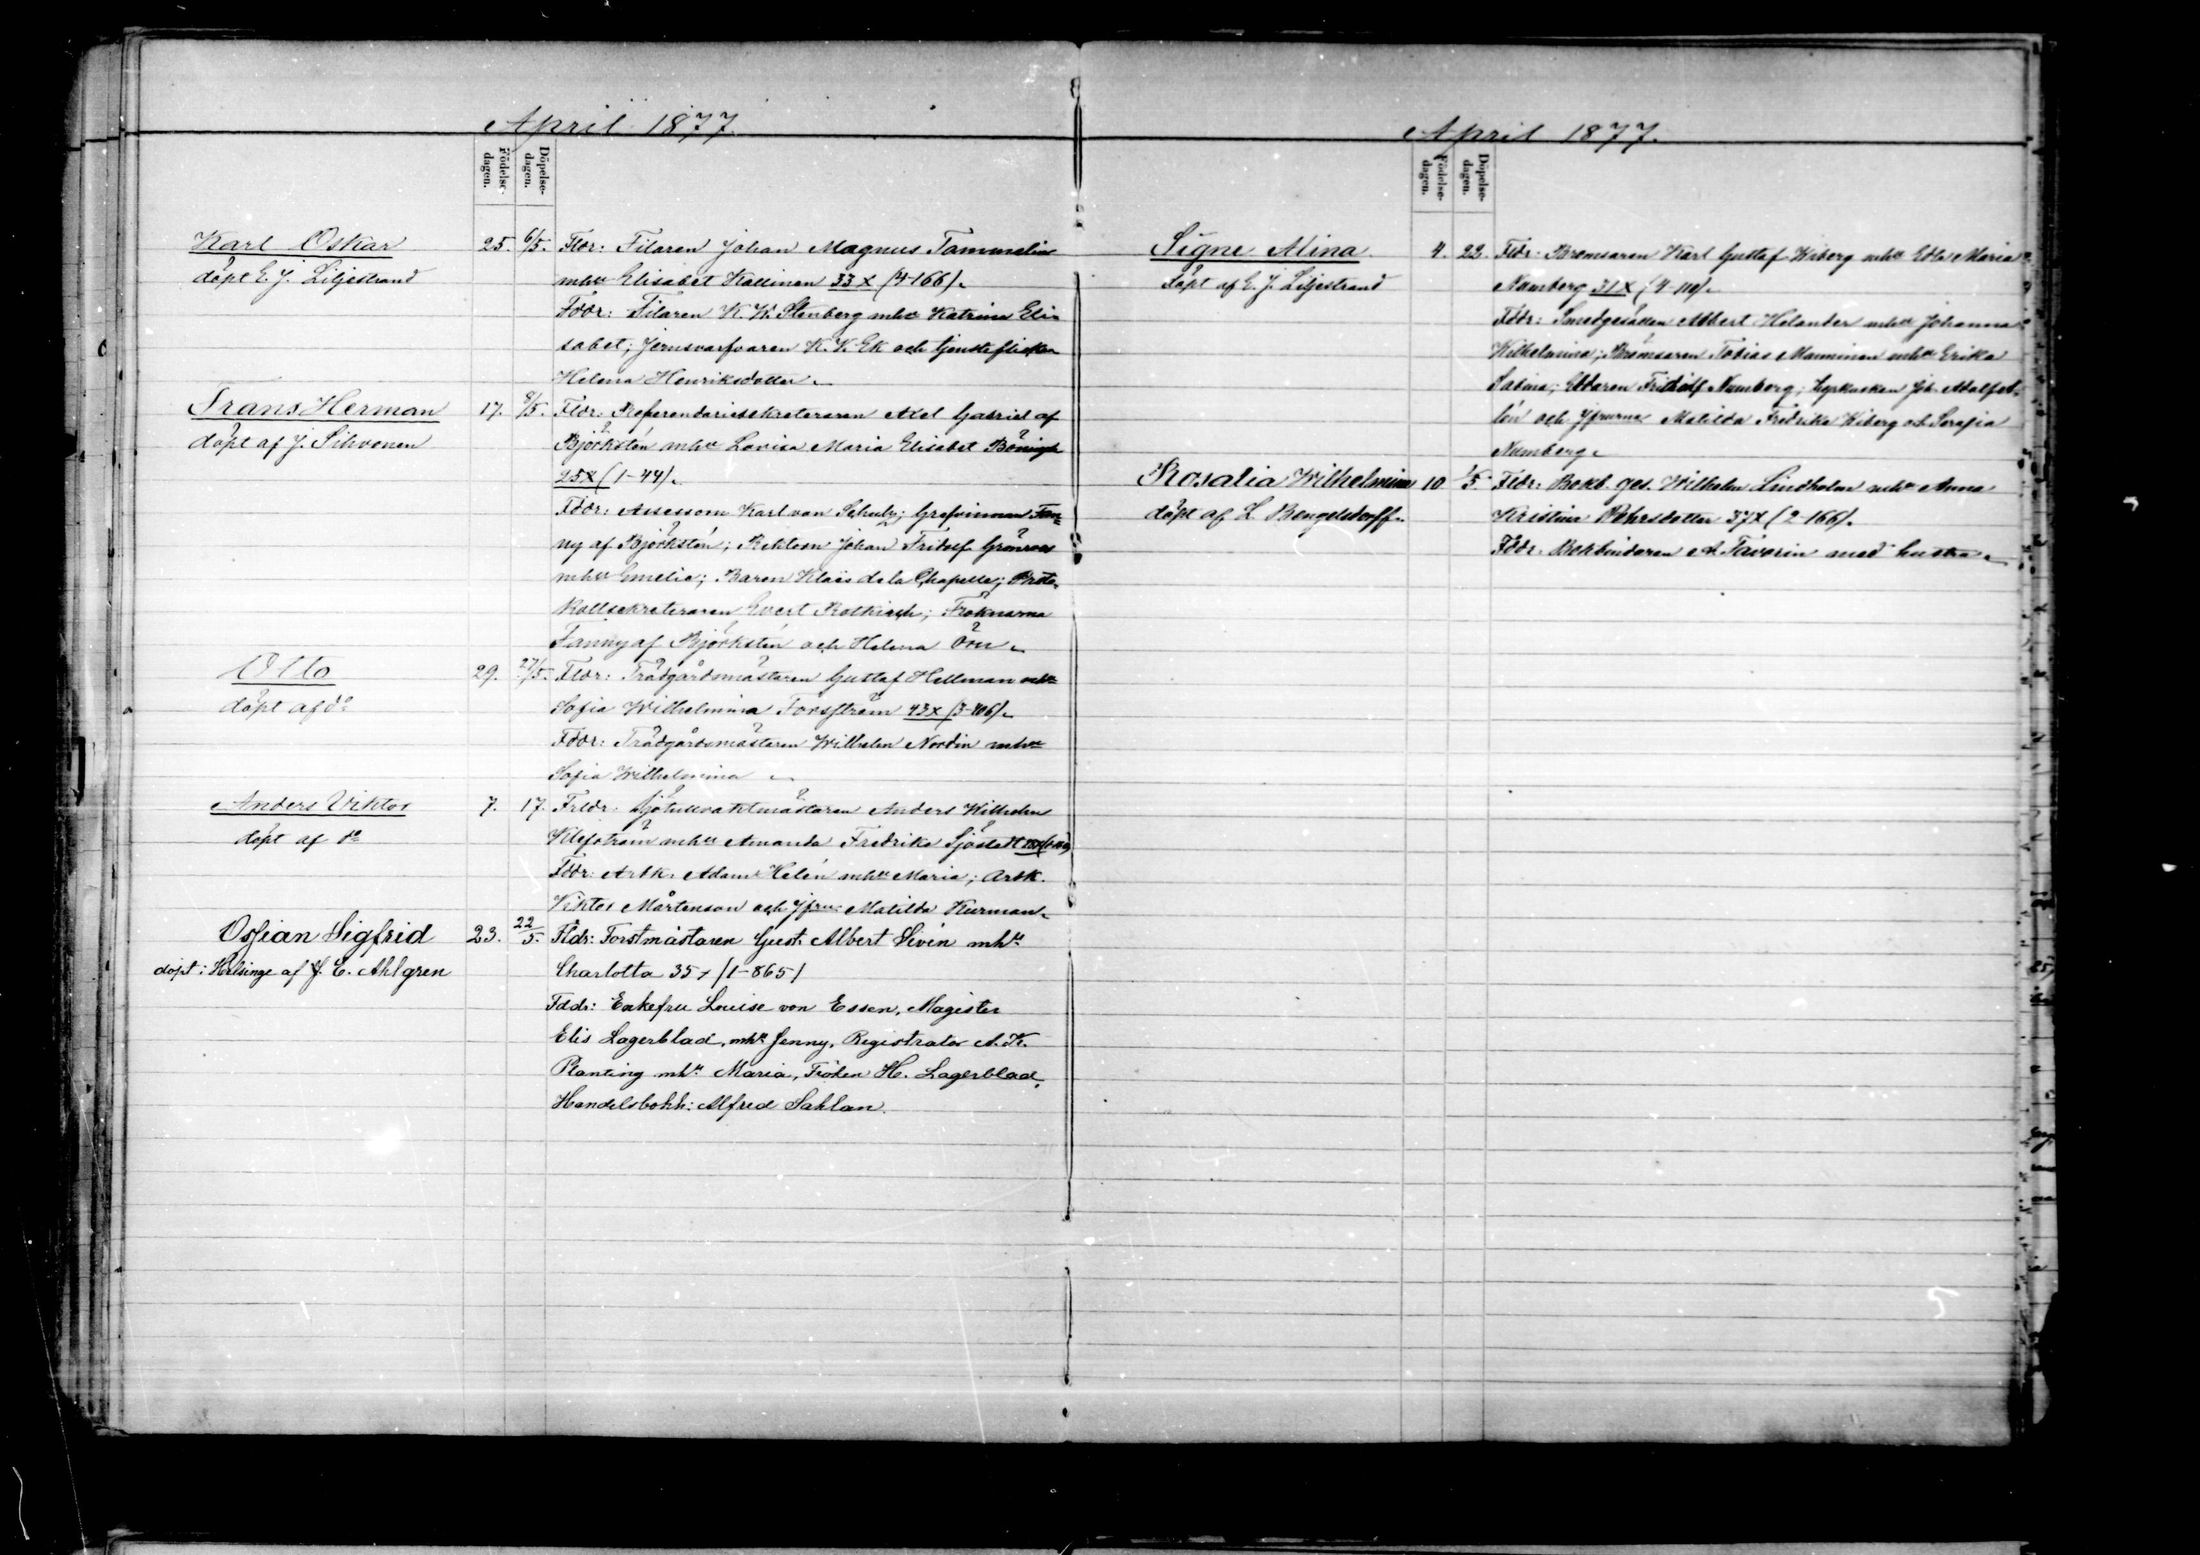 April 1877.
Födelse-dagen.
Döpelse-dagen.
Karl Oskar
döpt E. J. Liljestrand
25. 6/5. Fldr: Filaren Johan Magnus Tammelin
mhu Elisabet Kallinen 33 x (4-166).
Fddr: Filaren K. W. Stenberg mhu Katrina Eli-
sabet; Jernsvarfvaren K. V. Ek och tjensteflickan
Helena Henriksdotter.
Frans Herman
döpt af J. Sihvonen
17. 8/5. Fldr: Referendariesekreteraren Axel Gabriel af
Björkstén mhu Lovisa Maria Elisabet
25 x (1-44).
Fddr: Assessorn Karl von Schulz; Grefvinnan Fan-
ny af Björkstén; Rektorn Johan Fridolf
mhu Emelie; Baron Klaës de la Chapelle; Proto-
kollsekreteraren Evert Rotkirch; Fröknarna
Fanny af Björkstén och Helena Örn.
Otto
döpt af do
29. 27/5. Fldr: Trädgårdsmästaren Gustaf Hellman mhu
Sofia Wilhelmina Forsström 43 x (3-106).
Fddr: Trädgårdsmästaren Wilhelm Nordin mhu
Sofia Wilhelmina
Anders Viktor
döpt af do
7. 17. Frldr: Sjötullvaktmästaren Anders Wilhelm
Klefström mhu Amanda Fredrika Sjöstedt
Fddr: Arbk. Adam Helén mhu Maria; Arbk.
Viktor Mårtenson och Jfru Matilda Kurman.
Ossian Sigfrid
döpt i Helsinge af J. E. Ahlgren
23. 22/5. Fldr: Forstmästaren Gust. Albert Sivén mhu
Charlotta 35 x (1-865)
Fddr: Enkefru Louise von Essen, Magister
Elis Lagerblad, mhu Jenny, Registrator A. K.
Planting mhu Maria, Fröken H. Lagerblad,
Handelsbokh: Alfred Sahlan.
April 1877.
Födelse-dagen.
Döpelse-dagen.
Signe Alina
döpt af E. J. Liljestrand
4. 22. Fldr: Bromsaren Karl Gustaf Wiberg mhu Edla Maria
Numberg 31 x (4-110).
Fddr: Smedgesällen Albert Helander mhu Johanna
Wilhelmina; Bromsaren Tobias Manninen mhu Erika
Sabina; Eldaren Fridolf Numberg; Joh. Adolf
och Jfrurna Matilda Fredrika Wiberg och Serafia
Numberg.
Rosalia Wilhelmina
döpt af L. Bengelsdorff.
10. 1/5. Fldr: Bokb. ges. Wilhelm Lindholm mhu Anna
Kristina Pehrsdotter 37 x (2-166).
Fddr: Bokbindaren A. Taverin med hustru.
5